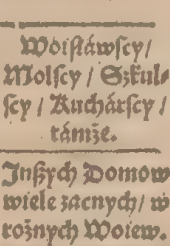 Woisłáwscy/
Molscy / Szkul⸗
scy / Kuchárscy /
támże.
Inßych Domow
wiele zacnych/ w
rożnych Woiew.